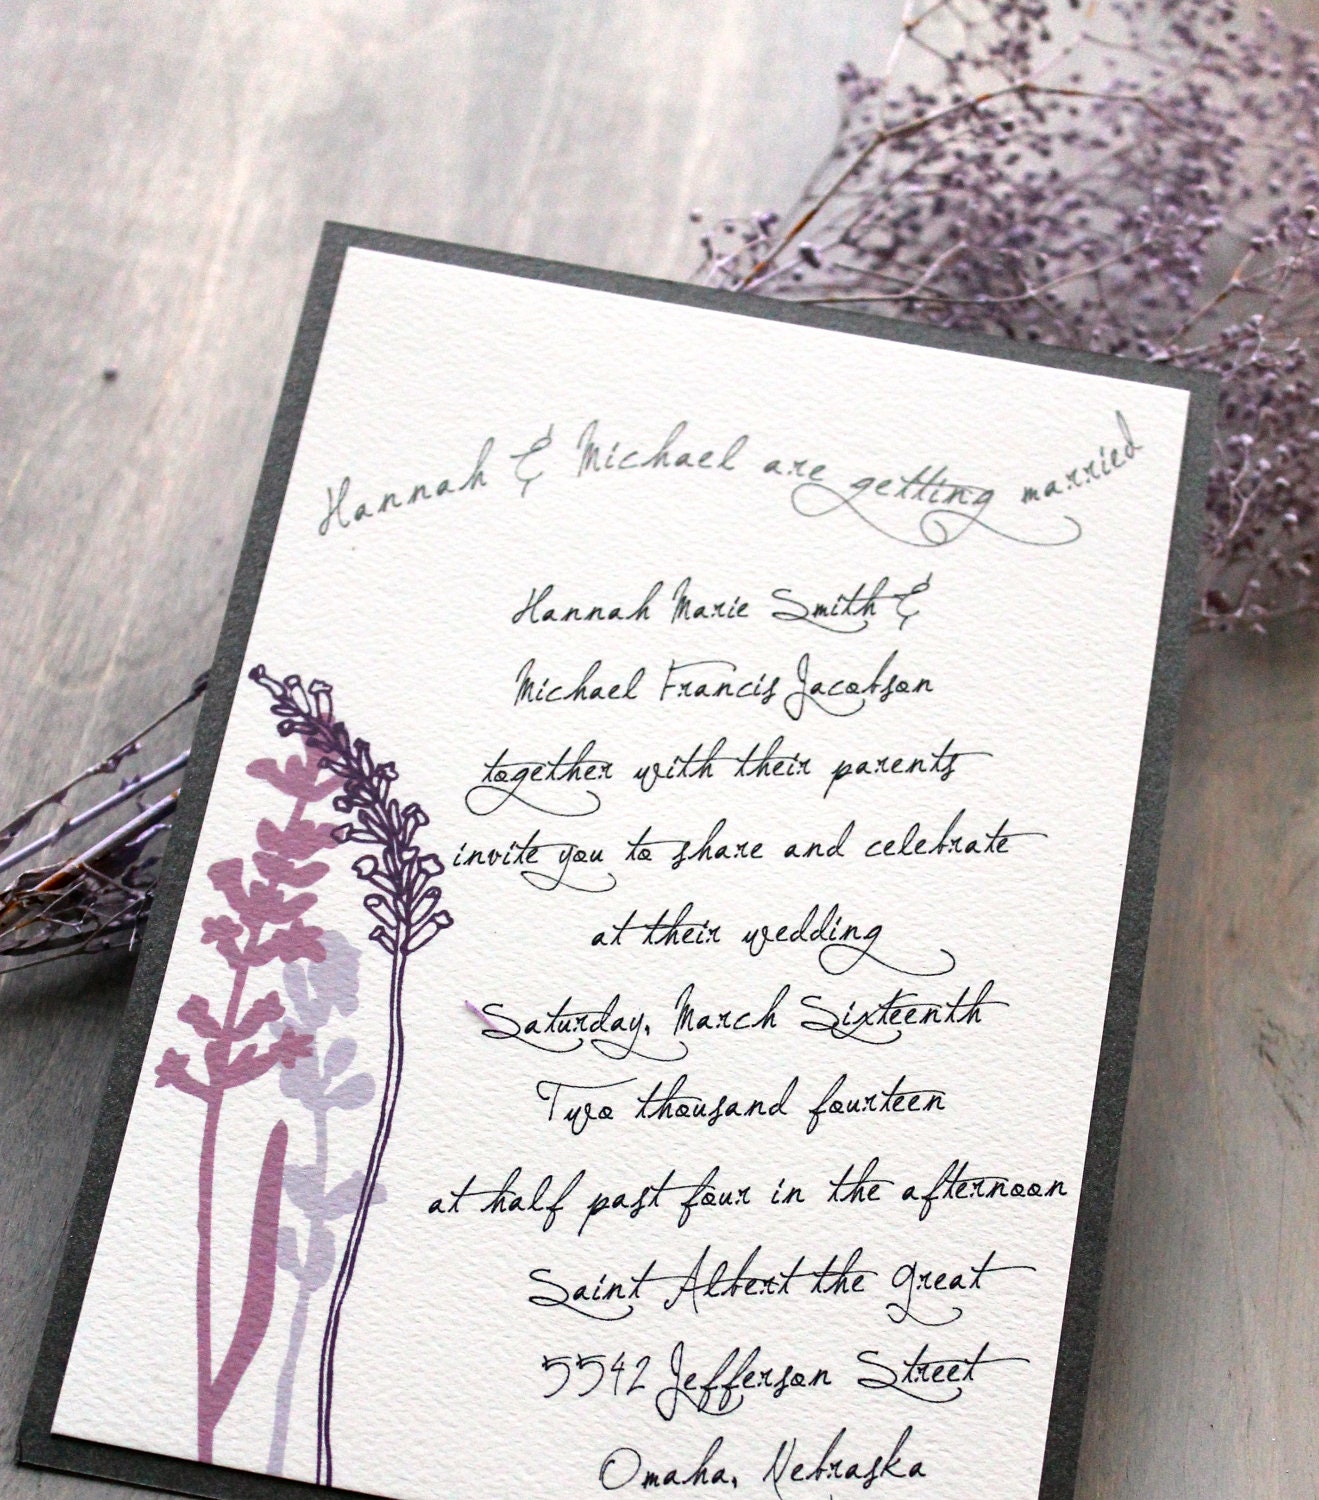 Hannah & Michael are getting married
Hannah Marie Smith &
Michael Francis Jacobson
together with their parents
invite you to share and celebrate
at their wedding
Saturday, March Sixteenth
Two thousand fourteen
at half past four in the afternoon
Saint Albert the Great
5542 Jefferson Street
Omaha, Nebraska